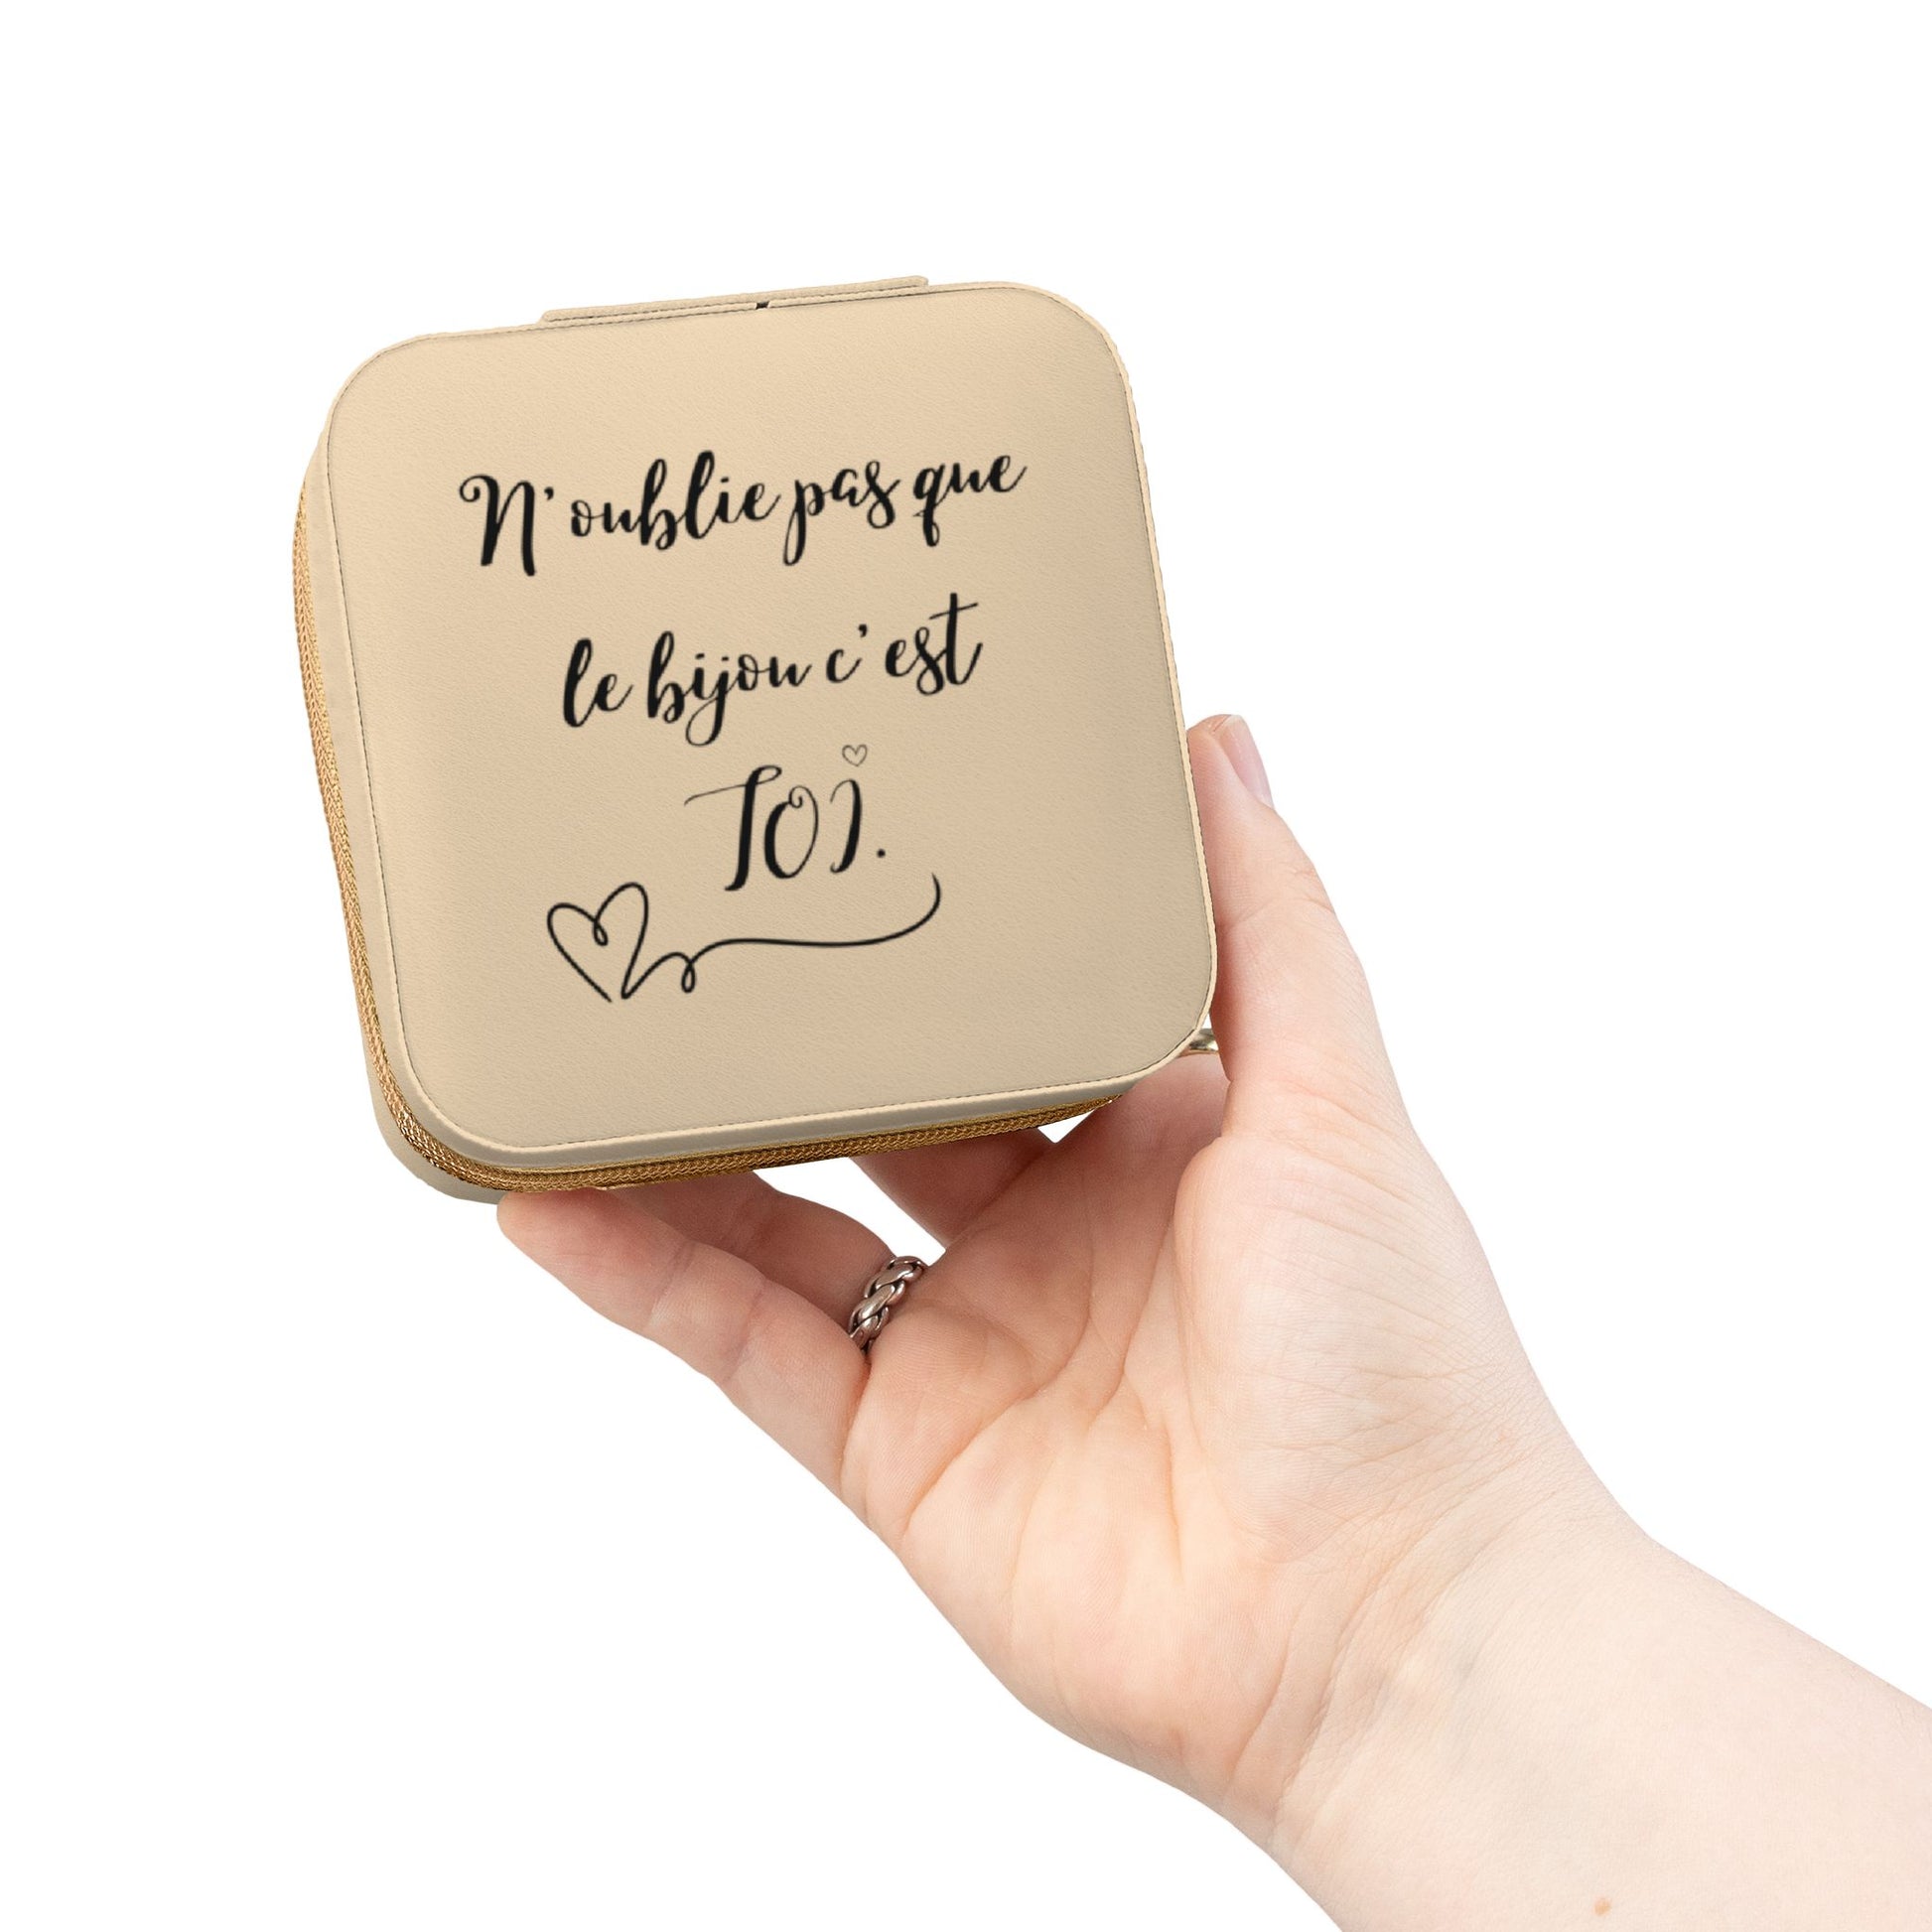 N'oublie pas que
le bijou c'est
TOI.